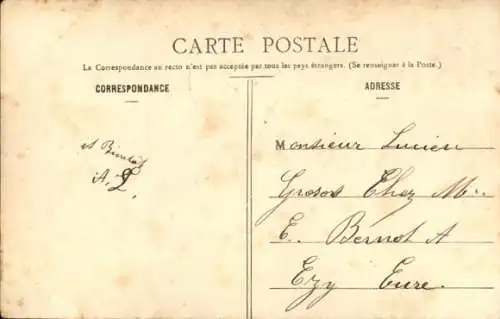 CARTE POSTALE
La Correspondance au recto n'est pas acceptée par tous les pays étrangers. (Se renseigner à la Poste.)
CORRESPONDANCE
ADRESSE
A Bientôt
A. L.
Monsieur Lucien
Chez M
E. Bernot A
Ezy Eure.